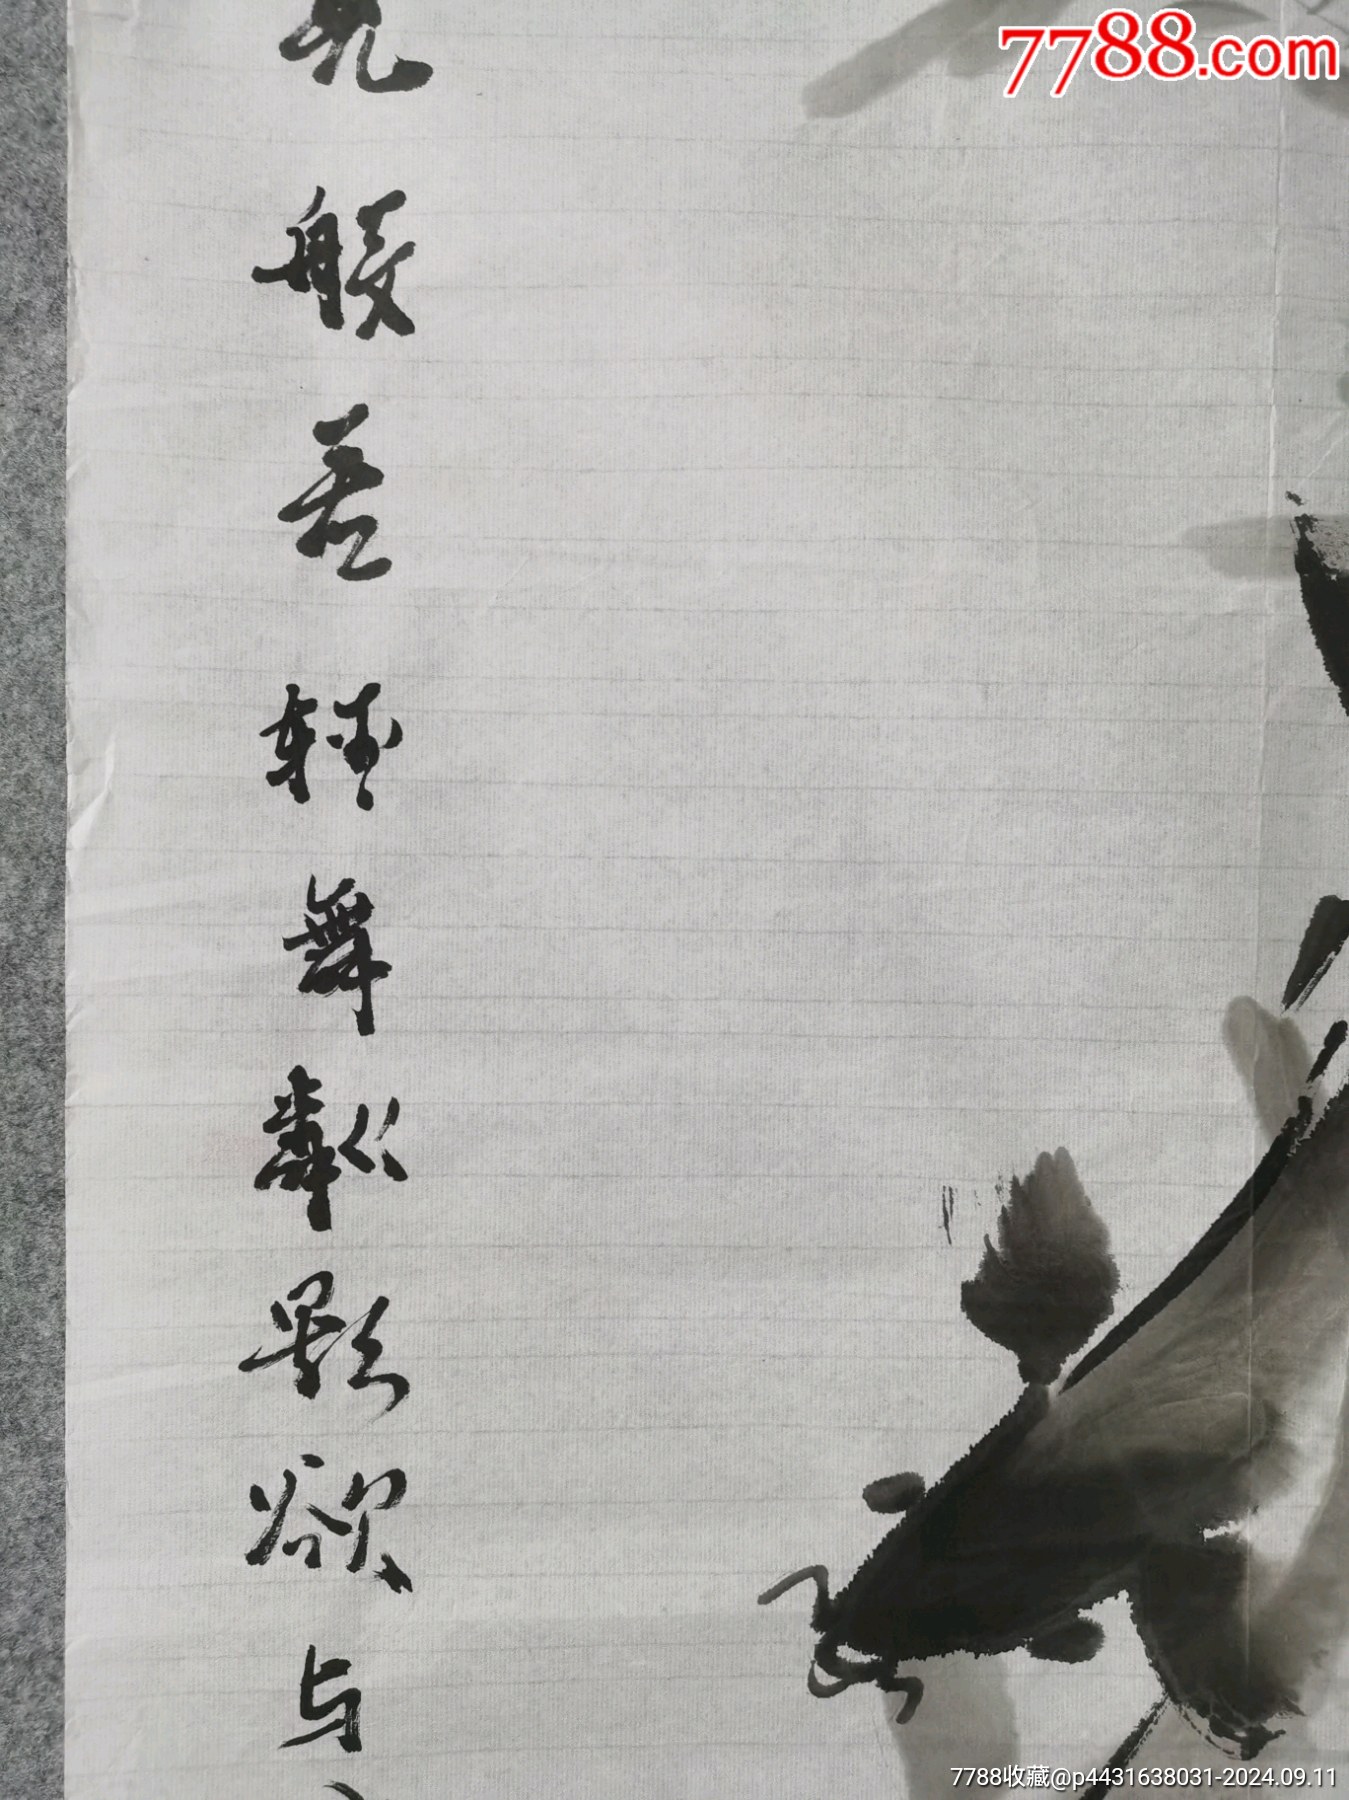 7788.com
般若舞粼影欲与
7788收藏@p4431638031-2024.09.11